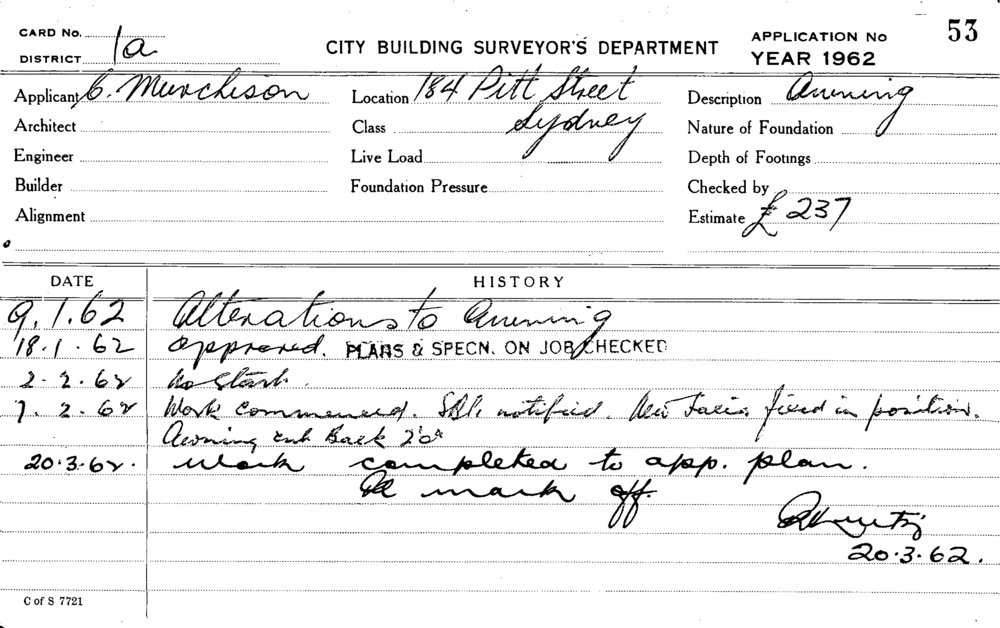 CARD No.
DISTRICT 1a
CITY BUILDING SURVEYOR'S DEPARTMENT
APPLICATION No 53
YEAR 1962
Applicant C. Murchison
Location 184 Pitt Street
Sydney
Description Awning
Architect
Class
Nature of Foundation
Engineer
Live Load
Depth of Footings
Builder
Foundation Pressure
Checked by
Alignment
Estimate £ 237
DATE HISTORY
9.1.62 Alterations to Awning
18.1.62 approved. PLANS & SPECN. ON JOB CHECKED
2.2.62 No Start.
7.2.62 Work commenced. notified. New Facia fixed in position.
Awning cut Back 2'0"
20.3.62. Work completed to app. plan.
mark off.
20.3.62.
C of S 7721